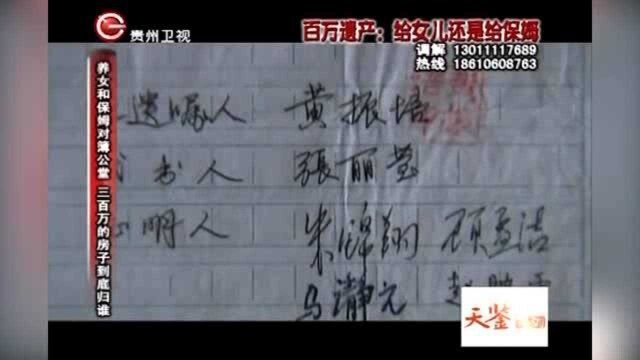 贵州卫视
百万遗产：给女儿还是给保姆
调解 13011117689
热线 18610608763
养女和保姆对簿公堂 三百万的房子到底归谁
遗嘱人 黄振培
书人 張丽莹
明人 朱锦翔 顾孟洁
马瀞元
天鉴